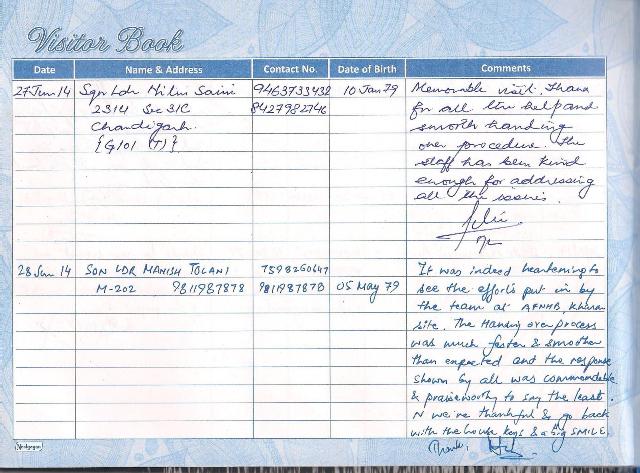 Visitor Book
Date Name & Address Contact No. Date of Birth Comments
27 Jun 14 Sqn Ldr Nitin Saini 9463733432 10 Jan 79 Memorable visit. Thanx
2314 Sec 31C 8427982746 for all the help and
Chandigarh. smooth handing
{G101 (T)} over procedure. The
staff has been kind
enough for addressing
all the issues.
28 Jun 14 SQN LDR MANISH TOLANI 7598260647 It was indeed heartening to
M-202 9811987878 9811987878 05 May 79 see the efforts put in by
the team at AFNHB, Kharar
site. The Handing over process
was much faster & smoother
than expected and the response
shown by all was commendable
& praiseworthy to say the least.
N we're thankful & go back
with the house keys & a big SMILE.
Thanks,
Neelgagan